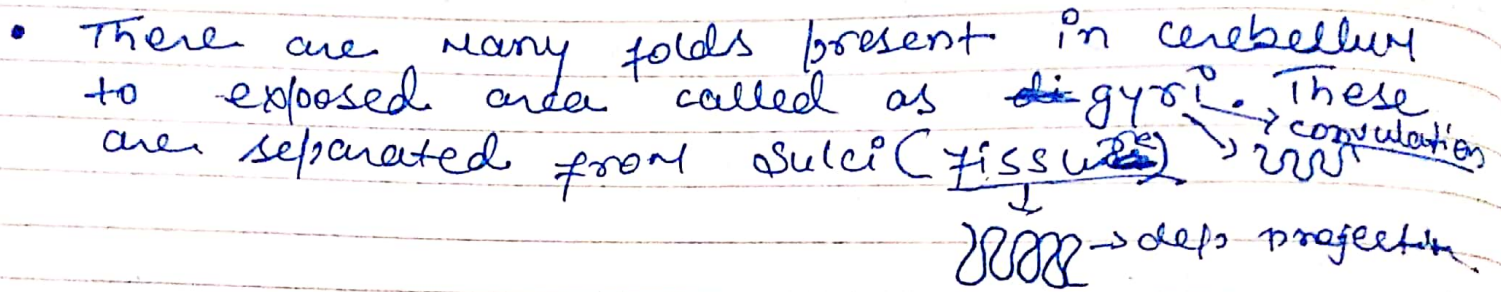 • There are many folds present in cerebellum
to exposed area called as gyri. These
→ convulation
are separated from sulci (fissures)
→ deep projection